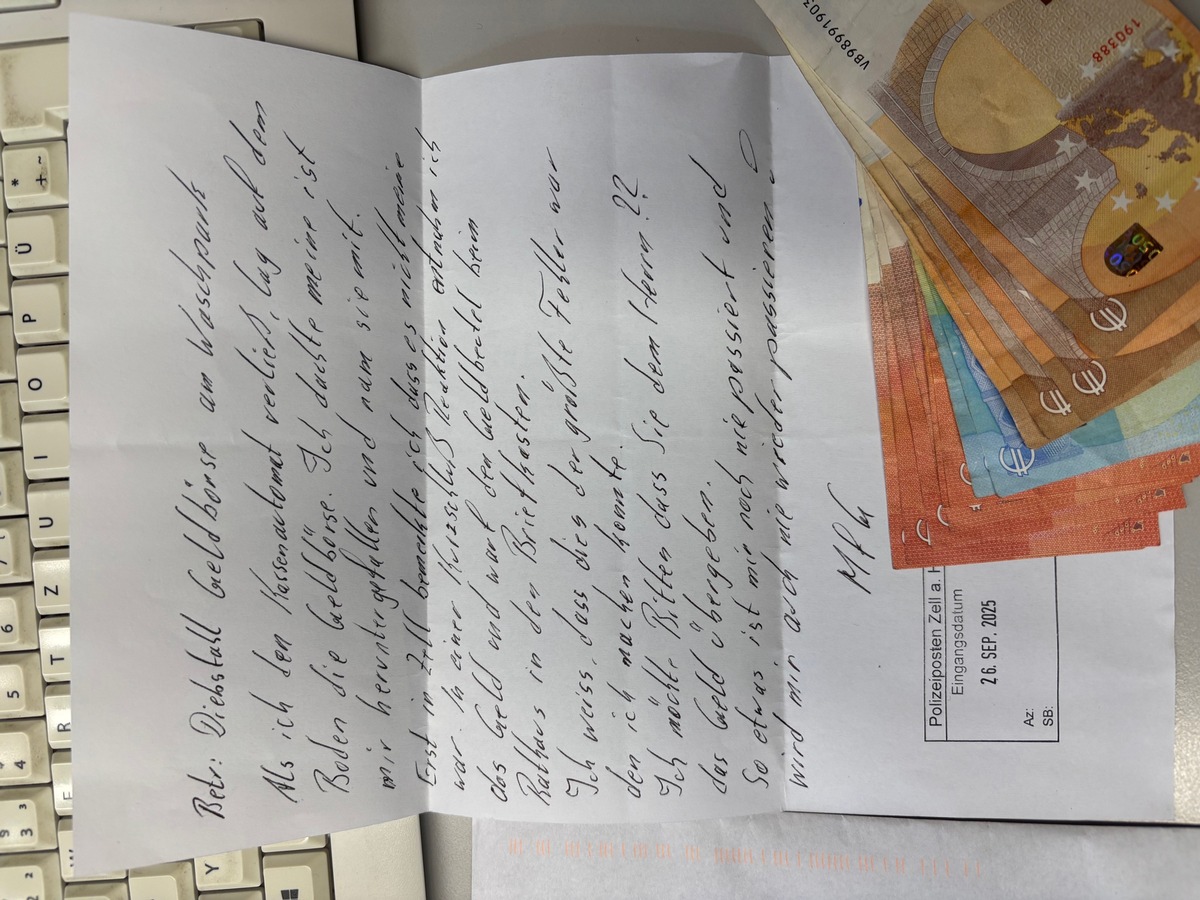 Betr: Diebstahl Geldbörse am Waschpark
Als ich den Kassenautomat verließ, lag auf dem
Boden die Geldbörse. Ich dachte meine ist
mir heruntergefallen und nam sie mit.
Erst in Zell bemerkte ich dass es nicht meine
war. In einer Kurzschluß Reaktion entnahm ich
das Geld und warf den Geldbeutel beim
Rathaus in den Briefkasten.
Ich weiss, dass dies der größte Fehler war
den ich machen konnte.
Ich möchte Bitten dass Sie dem Herrn ??
das Geld übergeben.
So etwas ist mir noch nie passiert und
wird mir auch nie wieder passieren
MFG
Polizeiposten Zell a. H
Eingangsdatum
26. SEP. 2025
Az:
SB:
VB98991903
190388
50
€
€
€
€
*
+ ~
Ü
P
O
I
U
Z
T
R
E
Y
7
6
5
4
3
2